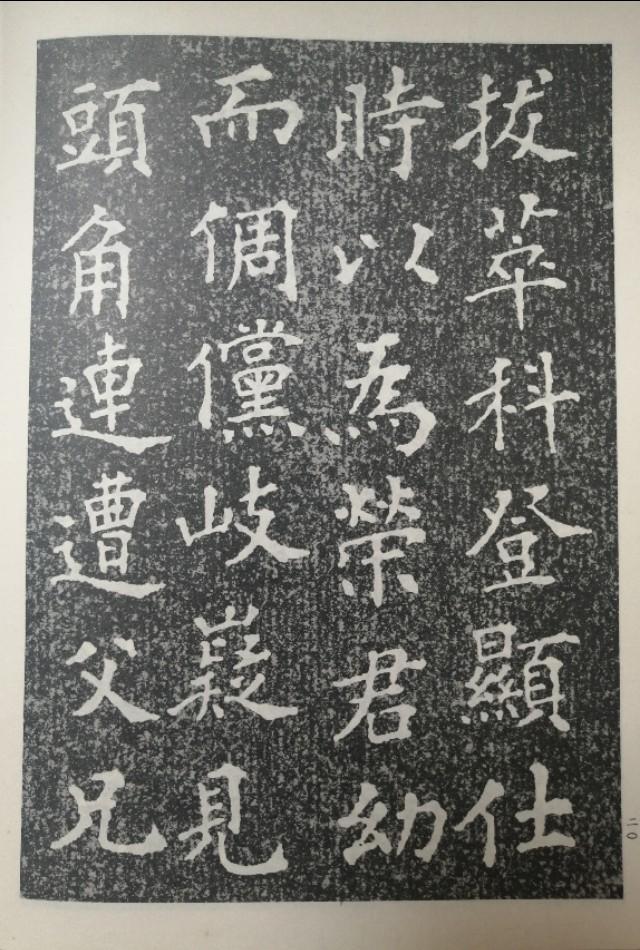 拔萃科登顯仕
時以為榮君幼
而倜儻岐嶷見
頭角連遭父兄
二〇